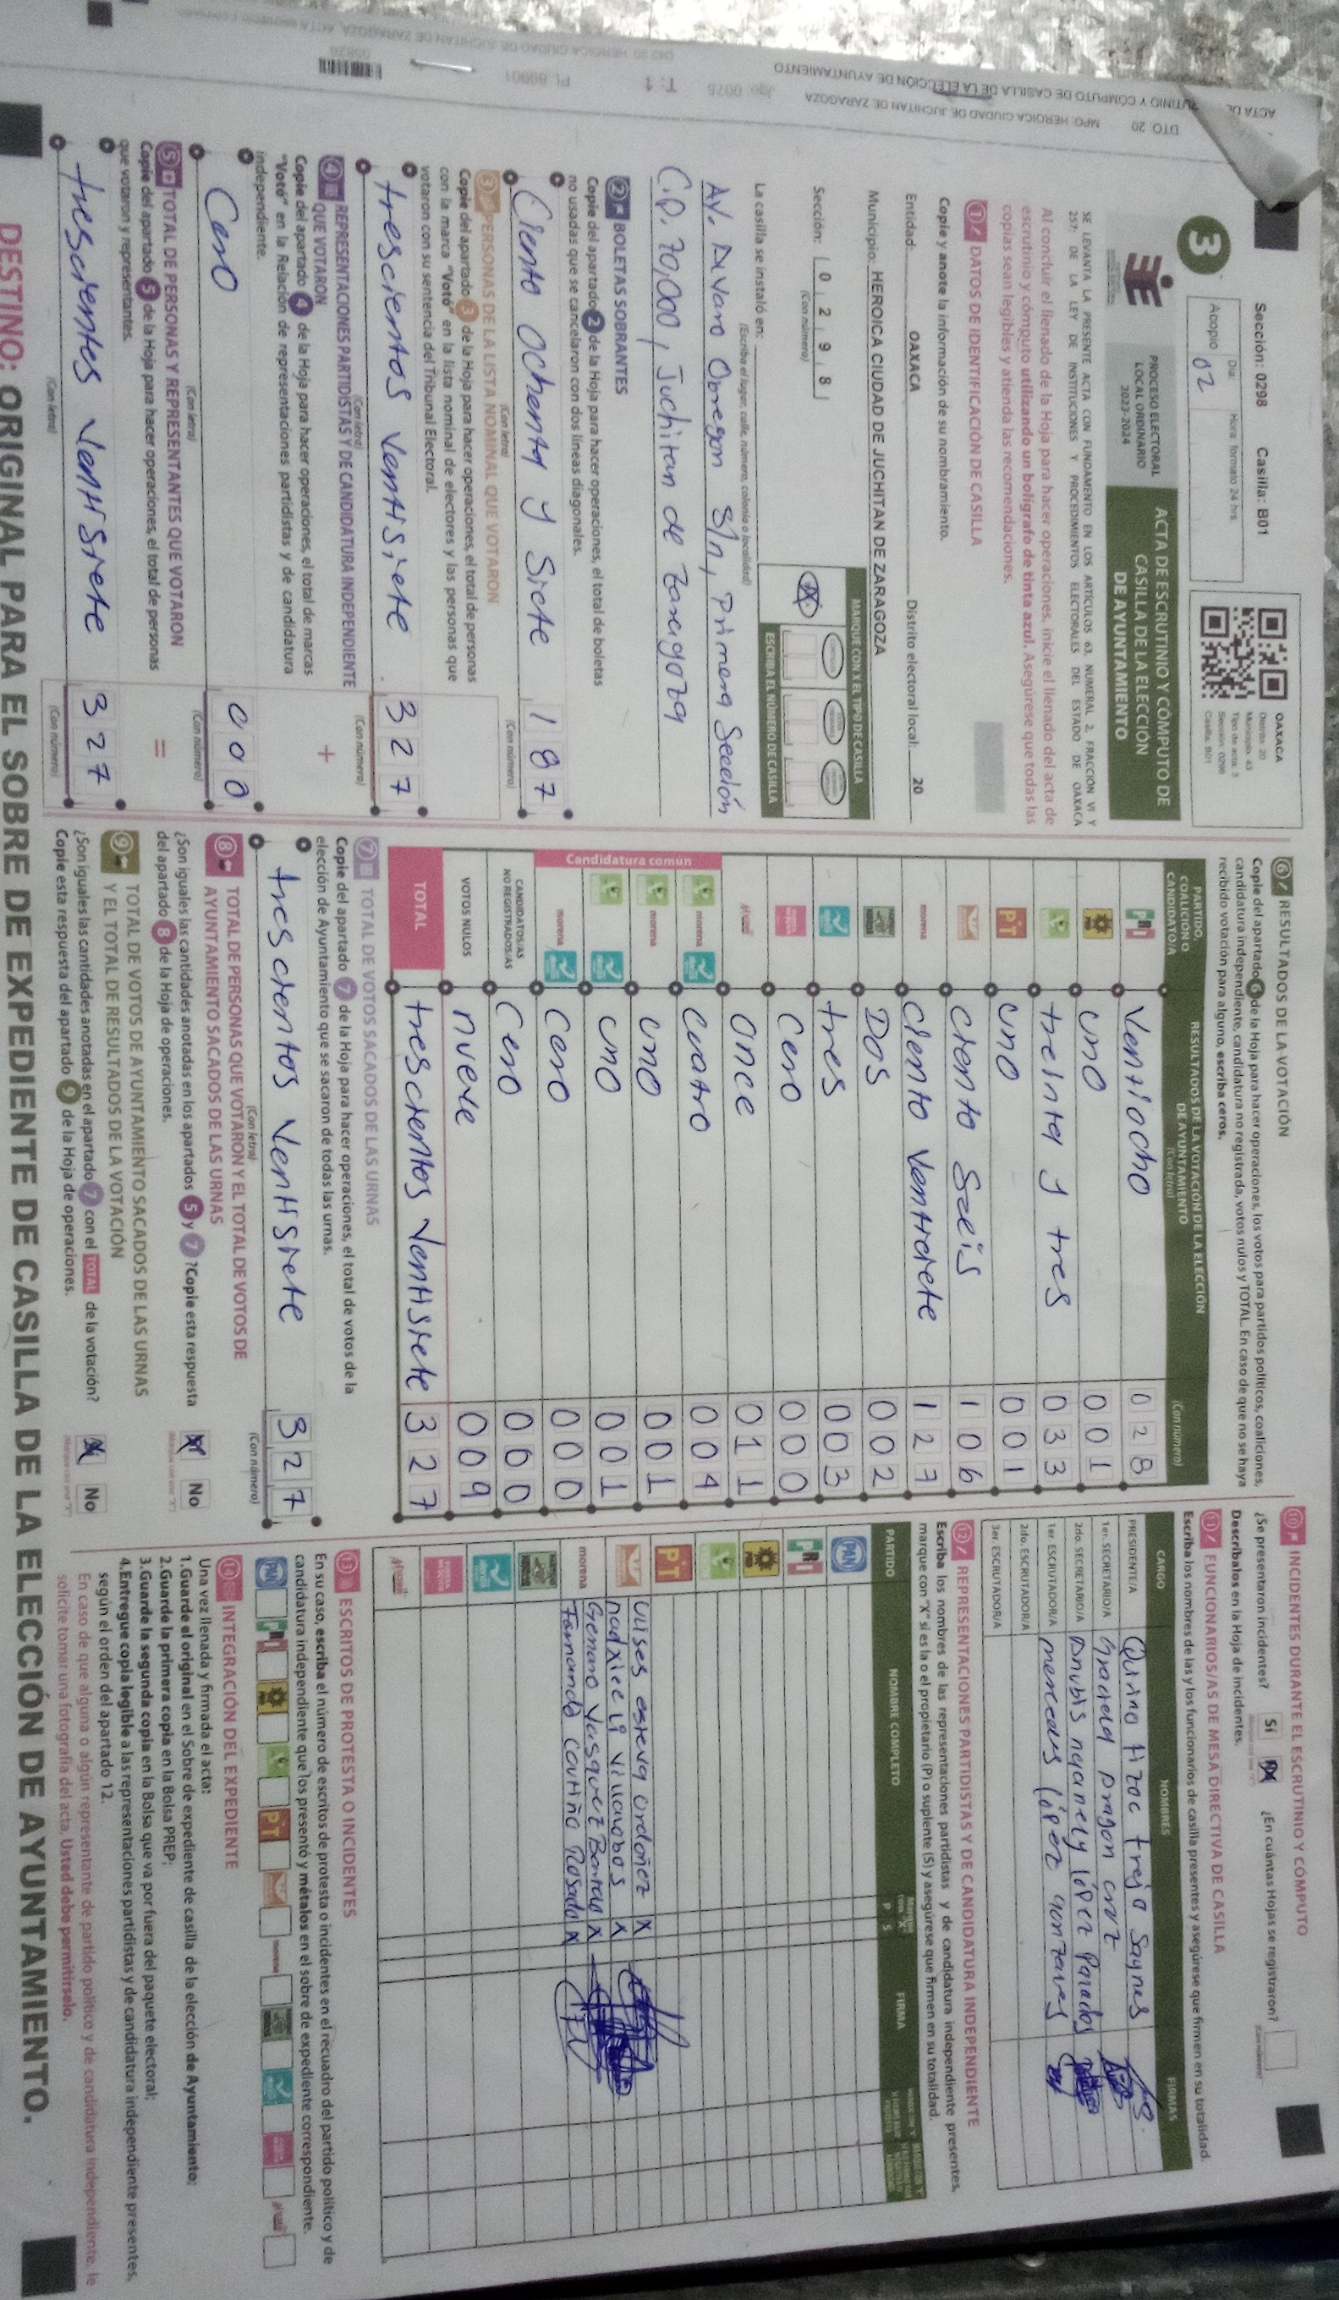 Sección: 0298 Casilla: B01
3
Día: Hora: formato 24 hrs
Acopio 02
OAXACA
Distrito: 20
Municipio: 43
Tipo de acta: 3
Sección: 0298
Casilla: B01
PROCESO ELECTORAL
LOCAL ORDINARIO
2023-2024
ACTA DE ESCRUTINIO Y CÓMPUTO DE
CASILLA DE LA ELECCIÓN
DE AYUNTAMIENTO
SE LEVANTA LA PRESENTE ACTA CON FUNDAMENTO EN LOS ARTÍCULOS 63, NUMERAL 2, FRACCIÓN VI Y
257; DE LA LEY DE INSTITUCIONES Y PROCEDIMIENTOS ELECTORALES DEL ESTADO DE OAXACA
Al concluir el llenado de la Hoja para hacer operaciones, inicie el llenado del acta de
escrutinio y cómputo utilizando un bolígrafo de tinta azul. Asegúrese que todas las
copias sean legibles y atienda las recomendaciones.
1 DATOS DE IDENTIFICACIÓN DE CASILLA
Copie y anote la información de su nombramiento.
Entidad: OAXACA Distrito electoral local: 20
Municipio: HEROICA CIUDAD DE JUCHITAN DE ZARAGOZA
Sección: 0 2 9 8
(Con número)
MARQUE CON X EL TIPO DE CASILLA
ESCRIBA EL NÚMERO DE CASILLA
La casilla se instaló en:
(Escriba el lugar, calle, número, colonia o localidad)
AV. Alvaro Obregon S/n, Primera Sección
C.P. 70,000, Juchitan de Zaragoza
2 BOLETAS SOBRANTES
Copie del apartado 2 de la Hoja para hacer operaciones, el total de boletas
no usadas que se cancelaron con dos líneas diagonales.
Ciento Ochenta y Siete 187
(Con letra) (Con número)
3 PERSONAS DE LA LISTA NOMINAL QUE VOTARON
Copie del apartado 3 de la Hoja para hacer operaciones, el total de personas
con la marca "Votó" en la lista nominal de electores y las personas que
votaron con su sentencia del Tribunal Electoral.
trescientos Ventisiete 327
(Con letra) (Con número)
4 REPRESENTACIONES PARTIDISTAS Y DE CANDIDATURA INDEPENDIENTE
QUE VOTARON +
Copie del apartado 4 de la Hoja para hacer operaciones, el total de marcas
"Votó" en la Relación de representaciones partidistas y de candidatura
independiente.
Cero 000
(Con letra) (Con número)
5 TOTAL DE PERSONAS Y REPRESENTANTES QUE VOTARON =
Copie del apartado 5 de la Hoja para hacer operaciones, el total de personas
que votaron y representantes.
trescientes Ventisiete 327
(Con letra) (Con número)
6 RESULTADOS DE LA VOTACIÓN
Copie del apartado 6 de la Hoja para hacer operaciones, los votos para partidos políticos, coaliciones,
candidatura independiente, candidatura no registrada, votos nulos y TOTAL. En caso de que no se haya
recibido votación para alguno, escriba ceros.
PARTIDO, COALICIÓN O CANDIDATO/A
RESULTADOS DE LA VOTACIÓN DE LA ELECCIÓN DE AYUNTAMIENTO
(Con letra) (Con número)
PRI Ventiocho 028
uno 001
treinta y tres 033
PT uno 001
ciento Seeis 106
morena Ciento Venticiete 127
Dos 002
tres 003
Cero 000
Once 011
Candidatura común
morena cuatro 004
morena uno 001
uno 001
morena Cero 000
CANDIDATOS/AS NO REGISTRADOS/AS Cero 000
VOTOS NULOS nueve 009
TOTAL trescientos Ventisiete 327
7 TOTAL DE VOTOS SACADOS DE LAS URNAS
Copie del apartado 7 de la Hoja para hacer operaciones, el total de votos de la
elección de Ayuntamiento que se sacaron de todas las urnas.
trescientos Ventisiete 327
(Con letra) (Con número)
8 TOTAL DE PERSONAS QUE VOTARON Y EL TOTAL DE VOTOS DE
AYUNTAMIENTO SACADOS DE LAS URNAS
¿Son iguales las cantidades anotadas en los apartados 5 y 7? Copie esta respuesta
del apartado 8 de la Hoja de operaciones.
No
9 TOTAL DE VOTOS DE AYUNTAMIENTO SACADOS DE LAS URNAS
Y EL TOTAL DE RESULTADOS DE LA VOTACIÓN
¿Son iguales las cantidades anotadas en el apartado 7 con el TOTAL de la votación?
Copie esta respuesta del apartado 9 de la Hoja de operaciones.
No
10 INCIDENTES DURANTE EL ESCRUTINIO Y CÓMPUTO
¿Se presentaron incidentes? Sí ¿En cuántas Hojas se registraron?
Descríbalos en la Hoja de incidentes.
11 FUNCIONARIOS/AS DE MESA DIRECTIVA DE CASILLA
Escriba los nombres de las y los funcionarios de casilla presentes y asegúrese que firmen en su totalidad.
CARGO NOMBRES FIRMAS
PRESIDENTE/A Quirino tizoc trejo Saynes
1er. SECRETARIO/A Graciela aragon cruz
2do. SECRETARIO/A Anubis nayanely lópez Parados
1er. ESCRUTADOR/A mercedes lópez gonzalez
2do. ESCRUTADOR/A
3er. ESCRUTADOR/A
12 REPRESENTACIONES PARTIDISTAS Y DE CANDIDATURA INDEPENDIENTE
Escriba los nombres de las representaciones partidistas y de candidatura independiente presentes,
marque con "X" si es la o el propietario (P) o suplente (S) y asegúrese que firmen en su totalidad.
PARTIDO NOMBRE COMPLETO P S FIRMA
PAN
PRI
PT Ulises esteva ordoñez X
nadxiee Li Villalobos X
morena Genaro Vasquez X
Fernanda Cortiño Rosado X
13 ESCRITOS DE PROTESTA O INCIDENTES
En su caso, escriba el número de escritos de protesta o incidentes en el recuadro del partido político y de
candidatura independiente que los presentó y métalos en el sobre de expediente correspondiente.
PAN PRI PT morena
14 INTEGRACIÓN DEL EXPEDIENTE
Una vez llenada y firmada el acta:
1.Guarde el original en el Sobre de expediente de casilla de la elección de Ayuntamiento;
2.Guarde la primera copia en la Bolsa PREP;
3.Guarde la segunda copia en la Bolsa que va por fuera del paquete electoral;
4.Entregue copia legible a las representaciones partidistas y de candidatura independiente presentes,
según el orden del apartado 12.
En caso de que alguna o algún representante de partido político y de candidatura independiente, le
solicite tomar una fotografía del acta. Usted debe permitírselo.
DESTINO: ORIGINAL PARA EL SOBRE DE EXPEDIENTE DE CASILLA DE LA ELECCIÓN DE AYUNTAMIENTO.
DTO: 20 MPO: HEROICA CIUDAD DE JUCHITAN DE ZARAGOZA